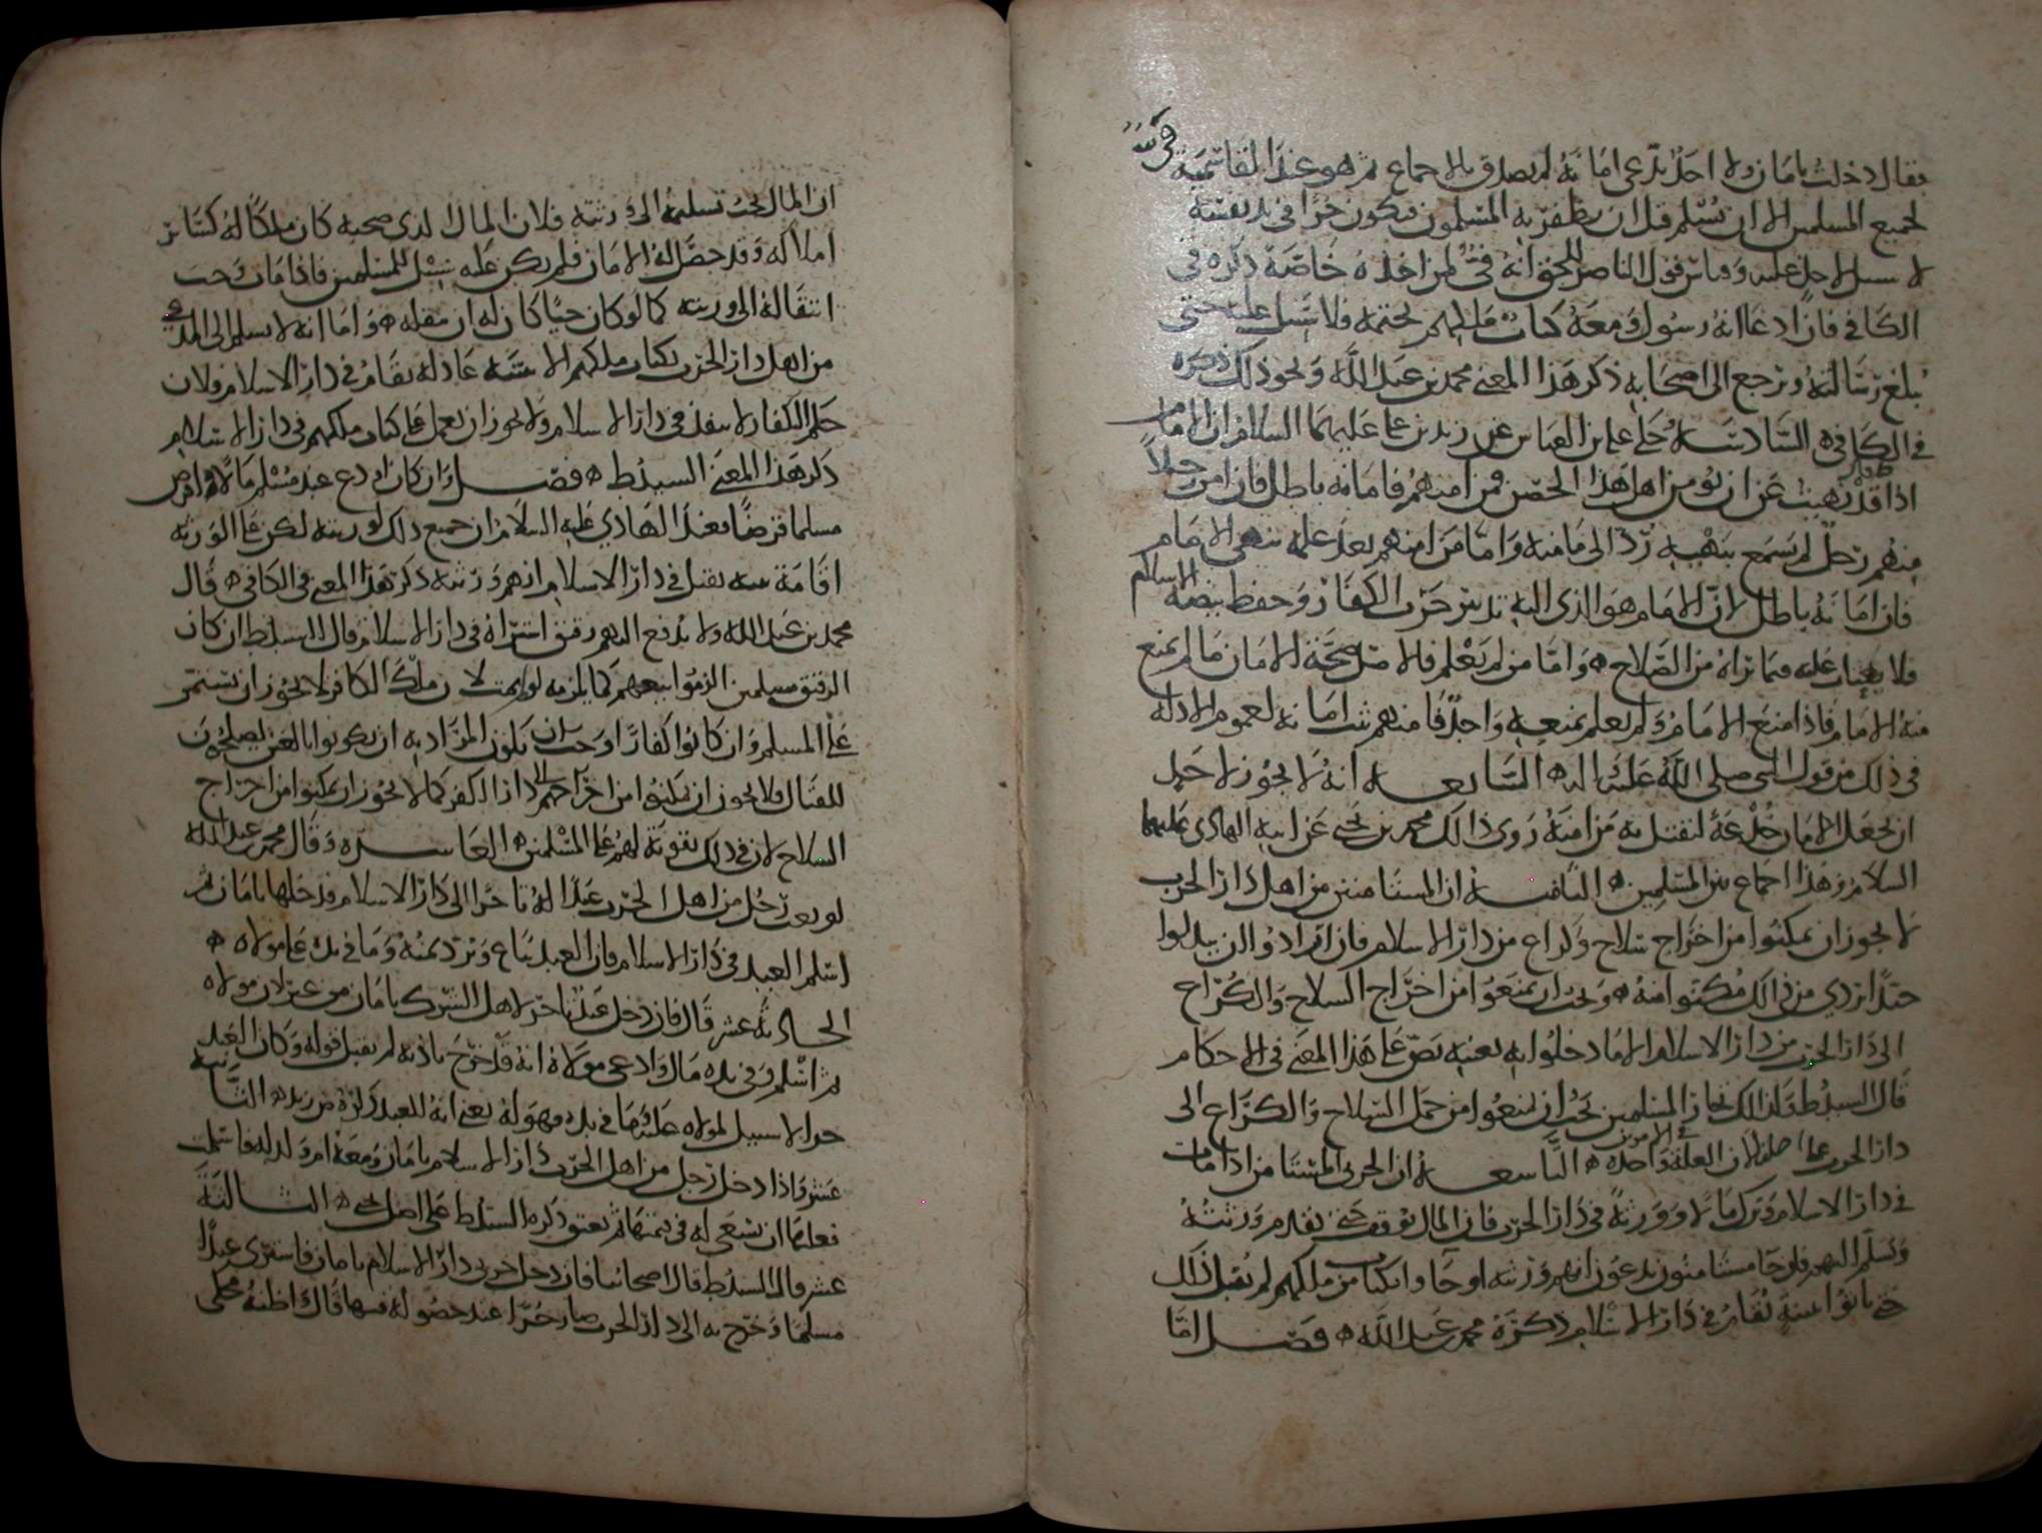 فقال دخلت بامان ولا احد يدعى امانه لم يصدق بالاجماع ثم هو عند القاسمية فى
لجميع المسلمين الا ان يسلم قبل ان يظفر به المسلمون فيكون حرا فى يد نفسه
لا سبيل لاحد عليه وقياس قول الناصر للحق انه فى لمن اخذه خاصة ذكره فى
الكافى فان ادعا انه رسول ومعه كتاب ملكهم بختمه فلا سبيل عليه حتى
يبلغ رسالته ويرجع الى اصحابه ذكر هذا المعنى محمد بن عبد الله ونحو ذلك ذكره
فى الكافى ه السادسة حكى على بن العباس عن زيد بن على عليهما السلام ان الامام
اذا قال قد نهيت عن ان يؤمن اهل هذا الحصن فمن امنهم فامانه باطل فان امن رجلا
منهم رجل لم يسمع بنهيه رد الى مامنه واما من امنهم بعد علمه بنهى الامام
فان امانه باطل لان الامام هو الذى اليه تدبير حرب الكفار وحفظ بيضة الاسلام
فلا يفتات عليه فيما يراه من الصلاح ه واما من لم يعلم فالاصل صحة الامان ما لم يمنع
منه الامام فاذا منع الامام ولم يعلم بمنعه واحد فامنهم ثبت امانه لعموم الادلة
فى ذلك من قول النبى صلى الله عليه واله ه السابعة انه لا يجوز لاحد
ان يجعل الامان خدعة ليقتل به من امنه روى ذلك محمد بن يحيى عن ابيه الهادى عليهما
السلام وهذا اجماع بين المسلمين ه الثامنة ان المستامنين من اهل دار الحرب
لا يجوز ان يمكنوا من اخراج سلاح وكراع من دار الاسلام فان ارادوا ان يبدلوا
جيدا بردي من ذلك مكنوا منه ه ويجب ان يمنعوا من اخراج السلاح والكراع
الى دار الحرب من دار الاسلام الا ما دخلوا به بعينه نص على هذا المعنى فى الاحكام
قال السيد ط وكذلك تجار المسلمين يجب ان يمنعوا من حمل السلاح والكراع الى
دار الحرب على اصله لان العلة فى الامرين واحدة ه التاسعة ان الحربى المستامن اذا مات
فى دار الاسلام وترك مالا وورثة فى دار الحرب فان المال يوقف حتى يقدم ورثته
ويسلم اليهم فان جا مستامنون يدعون انهم ورثته او جاوا بكتاب من ملكهم لم يقبل ذلك
حتى ياتوا ببينة تقام فى دار الاسلام ذكره محمد بن عبد الله ه فصل اما
ان المال يجب تسليمه الى ورثته فلان المال الذى صحبه كان ملكا له كسائر
املاكه وقد حصل له الامان فلم يكن عليه سبيل للمسلمين فاذا مات وجب
انتقاله الى ورثته كما لو كان حيا كان له ان ينقله ه واما انه لا يسلم الى المدعى
من اهل دار الحرب بكتاب ملكهم الا ببينة عادلة تقام فى دار الاسلام فلان
حكم الكفار لا ينفذ فى دار الاسلام ولا يجوز ان يعمل على كتاب ملكهم فى دار الاسلام
ذكر هذا المعنى السيد ط ه فصل وان كان اودع عند مسلم مالا او اقرض
مسلما قرضا فعند الهادى عليه السلام ان جميع ذلك لورثته لكن على الورثة
اقامة بينة تقبل فى دار الاسلام انهم ورثته ذكر هذا المعنى فى الكافى ه قال
محمد بن عبد الله ولا يدفع اليهم رقيق اشتراه فى دار الاسلام قال السيد ط ان كان
الرقيق مسلمين الزموا بيعهم كما يلزمه لو لم يمت لان ملك الكافر لا يجوز ان يستمر
على المسلم وان كانوا كفارا وجب ان يكون المراد به ان يكونوا بالغين يصلحون
للقتال فلا يجوز ان يمكنوا من اخراجهم الى دار الكفر كما لا يجوز ان يمكنوا من اخراج
السلاح لان فى ذلك تقوية لهم على المسلمين ه العاشرة وقال محمد بن عبد الله
لو بعث رجل من اهل الحرب عبدا له تاجرا الى دار الاسلام فدخلها بامان ثم
اسلم العبد فى دار الاسلام فان العبد يباع ويرد ثمنه وما فى يده على مولاه ه
الحادية عشر قال فان دخل عبد تاجر لاهل الشرك بامان من غير اذن مولاه
ثم اسلم وفى يده مال وادعى مولاه انه قد خرج باذنه لم يقبل قوله وكان العبد
حرا لا سبيل لمولاه عليه وما فى يده فهو له يعنى انه للعبد ذكره من يده ه الثانية
عشر واذا دخل رجل من اهل الحرب دار الاسلام بامان ومعه ام ولد له فاسلمت
فعليها ان تسعى له فى قيمتها ثم تعتق ذكره السيد ط على اصل يحيى ه الثالثة
عشر قال السيد ط قال اصحابنا فان دخل حربى دار الاسلام بامان فاشترى عبدا
مسلما وخرج به الى دار الحرب صار حرا عند حصوله فيها قال واظنه محكى